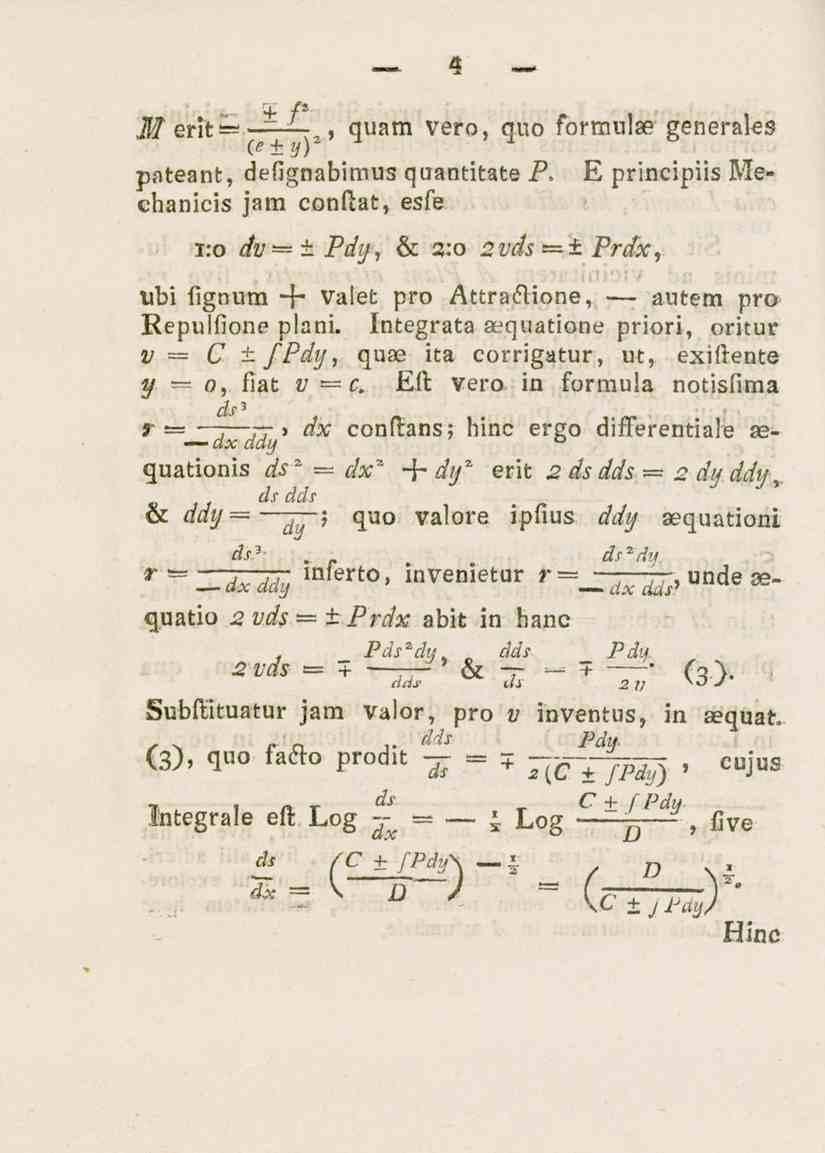 — 4 —
M erit = ∓ f² / (e ± y)², quam vero, quo formulæ generales
pateant, deſignabimus quantitate P. E principiis Me-
chanicis jam conſtat, esſe
1:o dv = ± Pdy, & 2:o 2vds = ± Prdx,
ubi ſignum + valet pro Attractione, — autem pro
Repulſione plani. Integrata æquatione priori, oritur
v = C ± ∫Pdy, quæ ita corrigatur, ut, exiſtente
y = 0, fiat v = c. Eſt vero in formula notisſima
r = ds³ / — dx ddy, dx conſtans; hinc ergo differentiale æ-
quationis ds² = dx² + dy² erit 2 ds dds = 2 dy ddy,
& ddy = ds dds / dy; quo valore ipſius ddy æquationi
r = ds³ / — dx ddy inferto, invenietur r = ds² dy / — dx dds, unde æ-
quatio 2 vds = ± Prdx abit in hanc
2 vds = ∓ Pds²dy / dds, & dds / ds = ∓ Pdy / 2 v. (3).
Subſtituatur jam valor, pro v inventus, in æquat.
(3), quo facto prodit dds / ds = ∓ Pdy / 2 (C ± ∫Pdy), cujus
Integrale eſt Log ds / dx = — ½ Log C ± ∫Pdy / D, ſive
ds / dx = (C ± ∫Pdy / D) — ½ = (D / C ± ∫Pdy)½.
Hinc